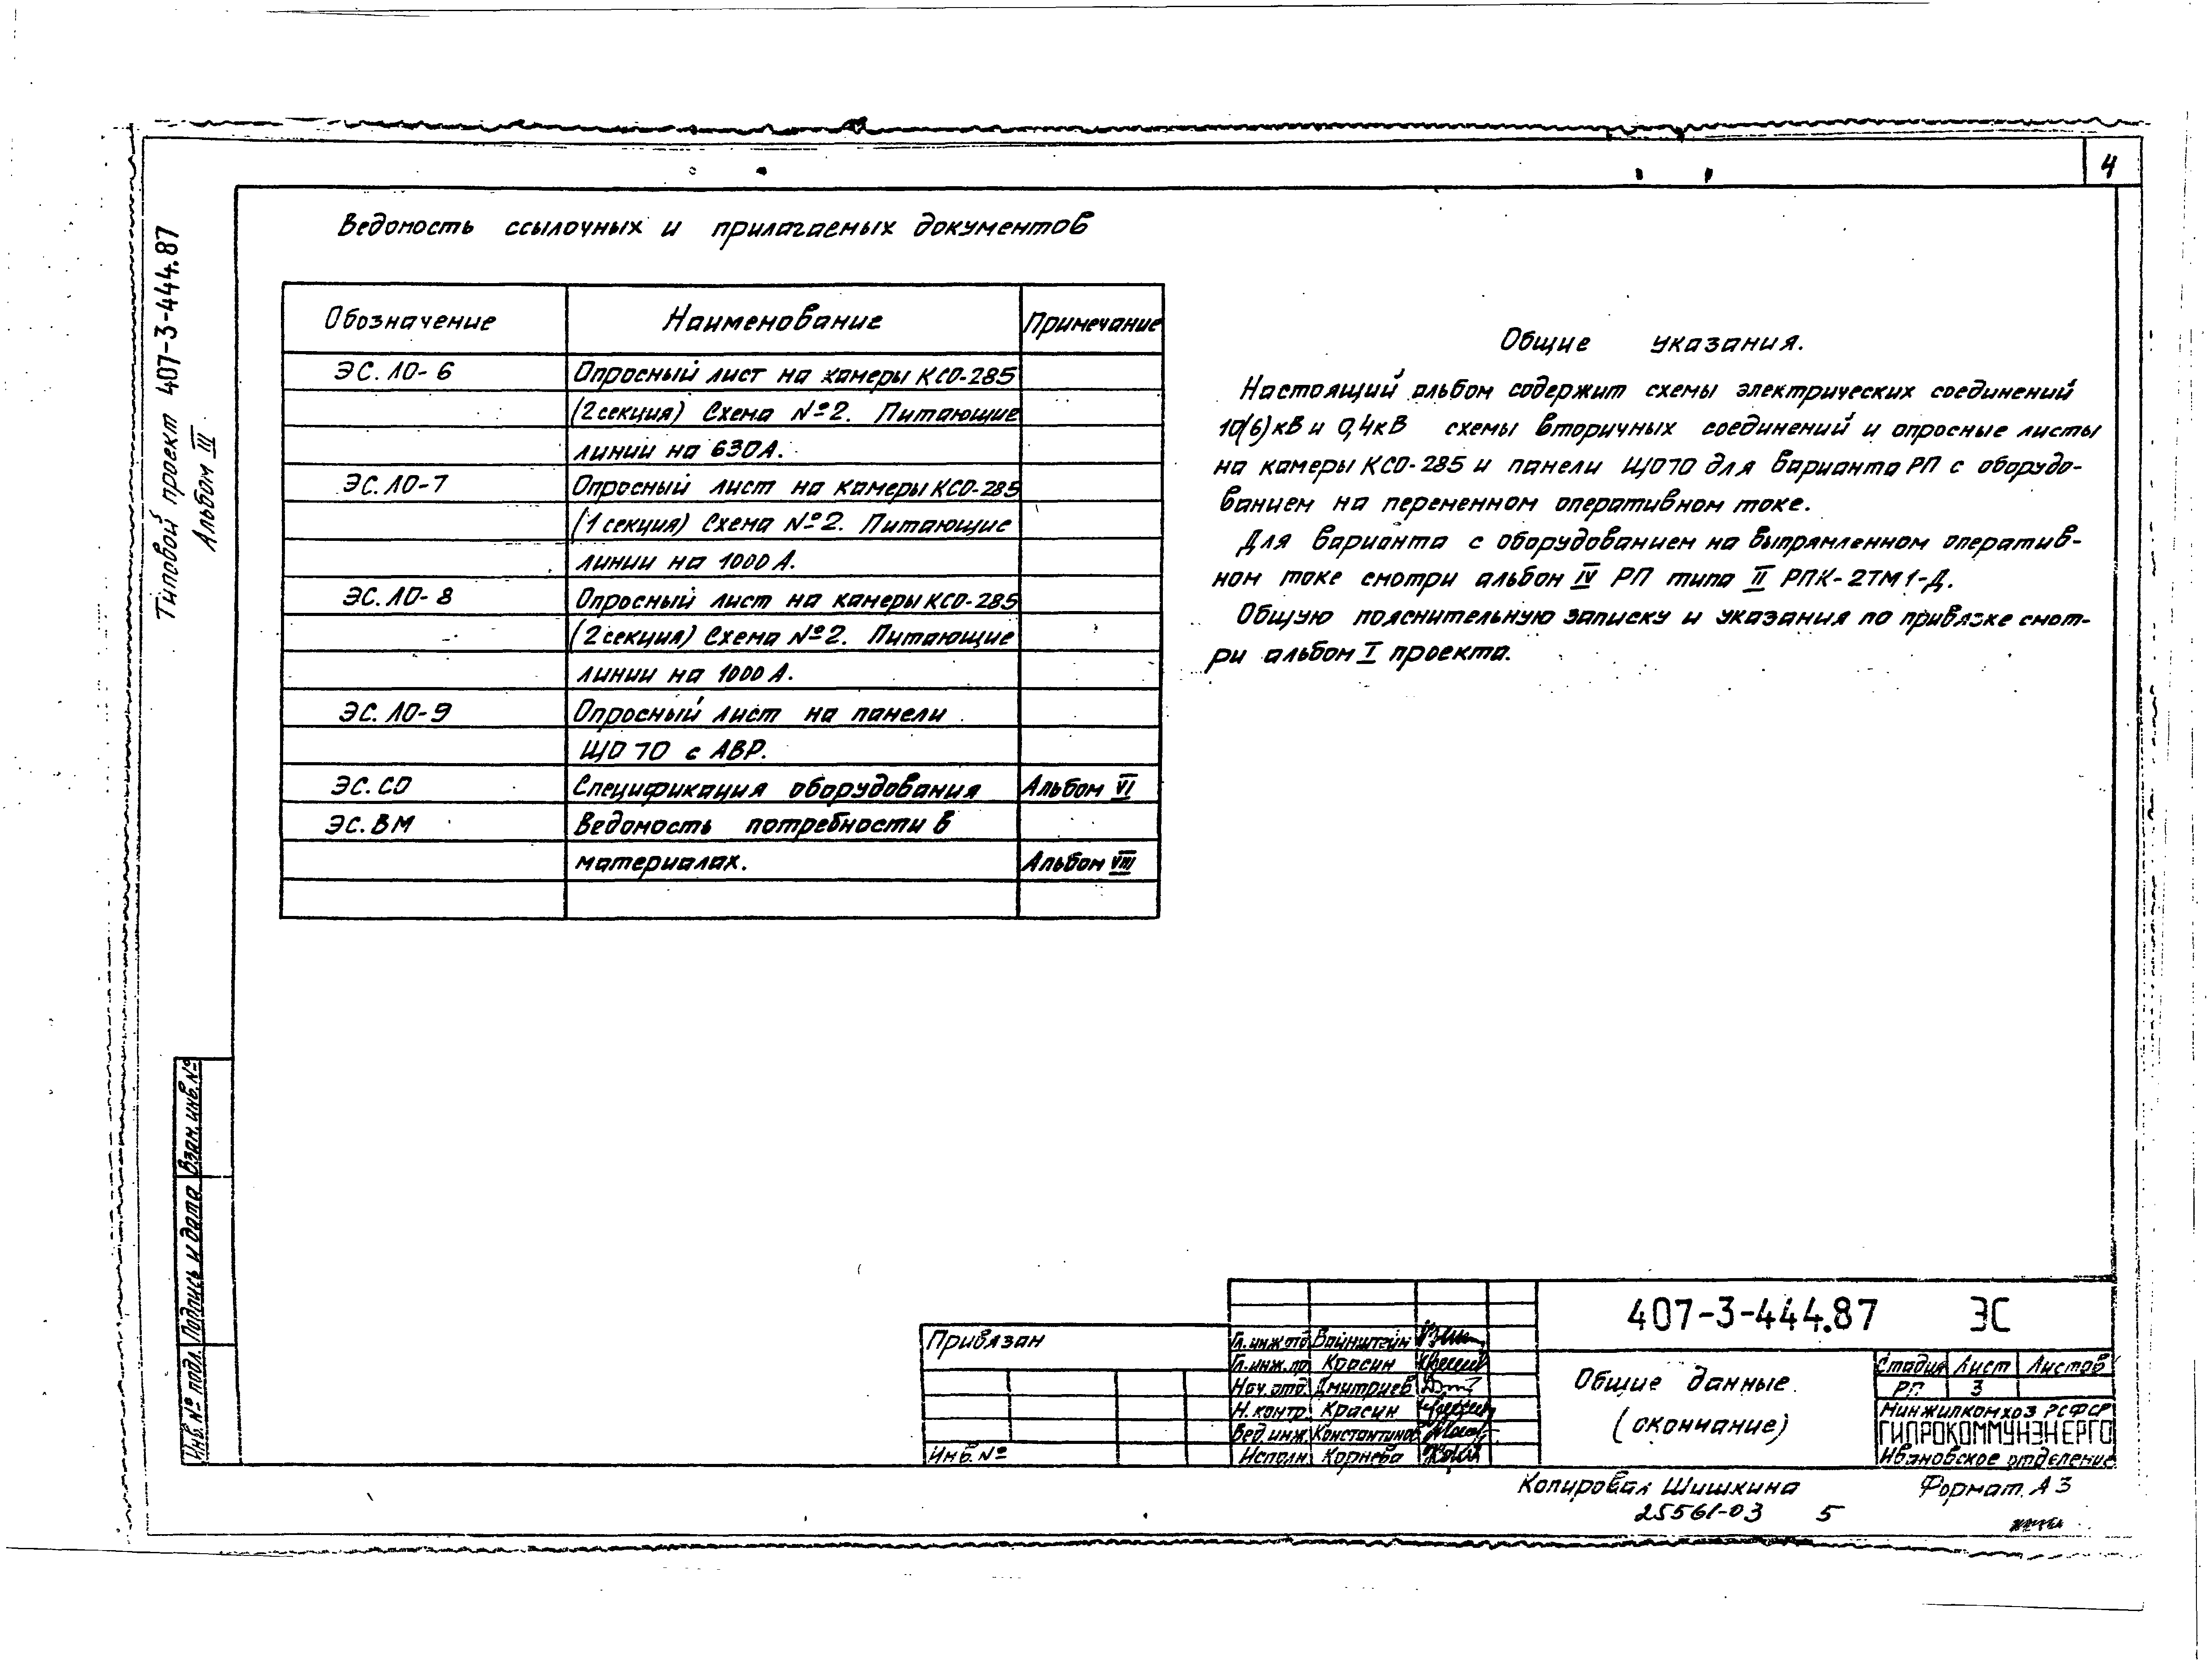 4
Типовой проект 407-3-444.87
Альбом III
Ведомость ссылочных и прилагаемых документов
Обозначение Наименование Примечание
ЭС.ЛО-6 Опросный лист на камеры КСО-285
(2 секция) Схема №2. Питающие
линии на 630А.
ЭС.ЛО-7 Опросный лист на камеры КСО-285
(1 секция) Схема №2. Питающие
линии на 1000 А.
ЭС.ЛО-8 Опросный лист на камеры КСО-285
(2 секция) Схема №2. Питающие
линии на 1000 А.
ЭС.ЛО-9 Опросный лист на панели
ЩО 70 с АВР.
ЭС.СО Спецификация оборудования Альбом VI
ЭС.ВМ Ведомость потребности в
материалах. Альбом VIII
Общие указания.
Настоящий альбом содержит схемы электрических соединений
10(6)кВ и 0,4кВ схемы вторичных соединений и опросные листы
на камеры КСО-285 и панели ЩО70 для варианта РП с оборудо-
ванием на переменном оперативном токе.
Для варианта с оборудованием на выпрямленном оператив-
ном токе смотри альбом IV РП типа II РПК-2ТМ1-Д.
Общую пояснительную записку и указания по привязке смот-
ри альбом I проекта.
Взам. инв. №
Подпись и дата
Инв. № подл.
Привязан
Инв. №
Гл. инж отд Вайнштейн
Гл. инж. пр Красин
Нач. отд. Дмитриев
Н. контр. Красин
Вед. инж. Константинов
Исполн Корнева
407-3-444.87 ЭС
Общие данные.
(окончание)
Стадия Лист Листов
РП 3
Минжилкомхоз РСФСР
ГИПРОКОММУНЭНЕРГО
Ивановское отделение
Копировал Шишкина Формат А3
25561-03 5